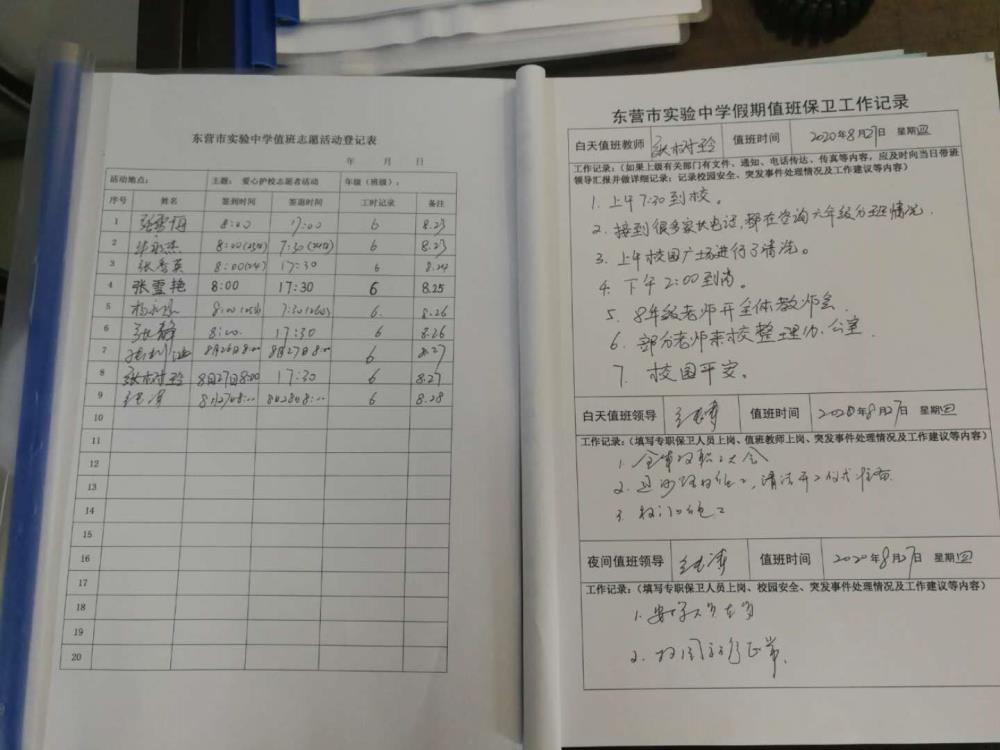 东营市实验中学值班志愿活动登记表
年 月 日
活动地点： 主题： 爱心护校志愿者活动 年级（班级）：
序号 姓名 签到时间 签退时间 工时记录 备注
1 张雪梅 8:00 17:00 6 8.23
2 8:00 7:30 6 8.23
3 张秀英 8:00 17:30 6 8.24
4 张雪艳 8:00 17:30 6 8.25
5 8:00 7:30 6. 8.26
6 张静 8:00. 17:30 6 8.26
7 8月26日8:00 8月27日8:00 6 8.27
8 张树玲 8月27日8:00 17:30 6 8.27
9 6 8.28
10
11
12
13
14
15
16
17
18
19
20
东营市实验中学假期值班保卫工作记录
白天值班教师 张树玲 值班时间 2020年8月27日 星期四
工作记录：（如果上级有关部门有文件、通知、电话传达、传真等内容，应及时向当日带班
领导汇报并做详细记录；记录校园安全、突发事件处理情况及工作建议等内容）
1. 上午7:30到校。
2. 接到很多家长电话，都在咨询六年级分班情况.
3. 上午校园广场进行了清洗。
4. 下午2:00到岗。
5. 8年级老师开全体教师会.
6. 部分老师来校整理办公室.
7. 校园平安。
白天值班领导 值班时间 2020年8月27日 星期四
工作记录：（填写专职保卫人员上岗、值班教师上岗、突发事件处理情况及工作建议等内容）
1.
2. 清洁开工仪式准备
3.
夜间值班领导 值班时间 2020年8月27日 星期四
工作记录：（填写专职保卫人员上岗、校园安全、突发事件处理情况及工作建议等内容）
1.
2. 正常.